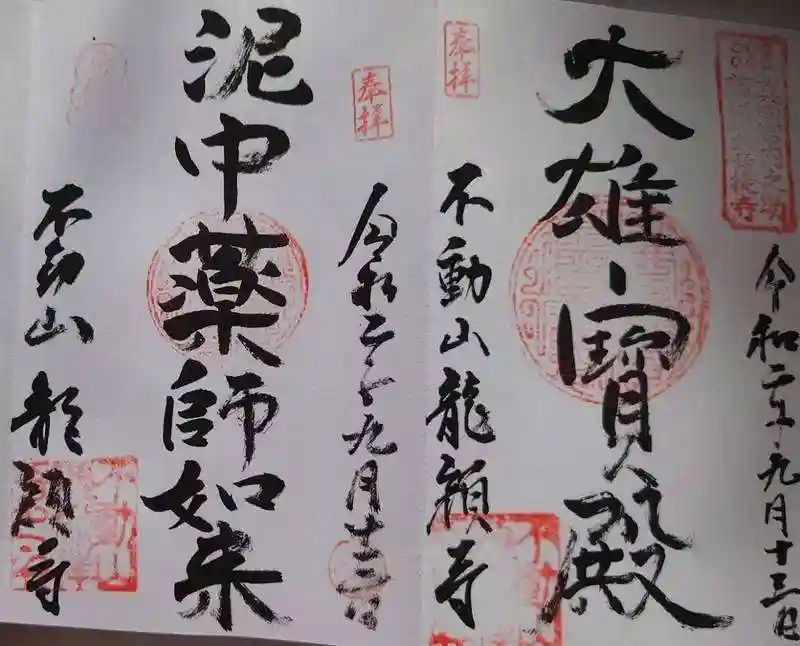 奉拝
大雄寶殿
令和二年九月十三日
不動山龍顔寺
奉拝
泥中薬師如来
令和二年九月十三日
不動山龍顔寺
不動山